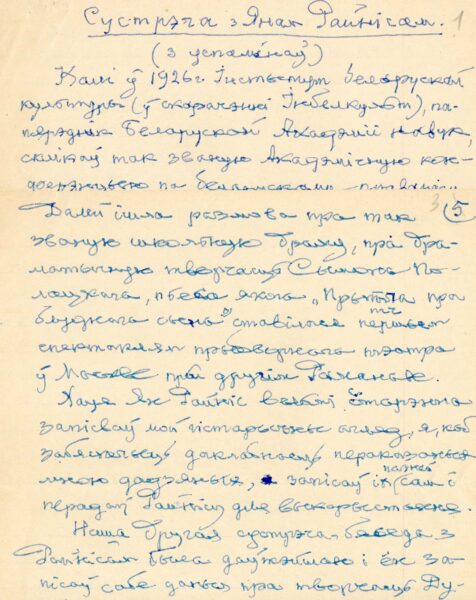 Сустрэча з Янам Райнісам. 1
(з успамінаў)
Калі ў 1926 г. Інстытут беларускай
культуры (ў скарачэнні Інбелкульт), па-
пярэднік Беларускай Акадэміі навук,
склікаў так званую Акадэмічную кан-
ферэнцыю па беларускаму
3 5
Далей ішла размова пра так
званую школьную драму, пра дра-
матычную творчасць Сымона По-
лацкага, п'еса якога „Прытча пра
блуднага сына" ставілася першым
спектаклям прыдворнага тэатра
ў Маскве пры другім Раманаве.
Хаця Ян Райніс вельмі старанна
запісваў мой гістарычны агляд, я, каб
забяспечыць дакладнасць пераказаных
мною дадзеных, запісаў іх сам і
перадаў Райнісу для выкарыстання.
Наша другая сустрэча-бяседа з
Райнісам была даўжэйшаю і ён за-
пісаў сабе даныя пра творчасць Ду-